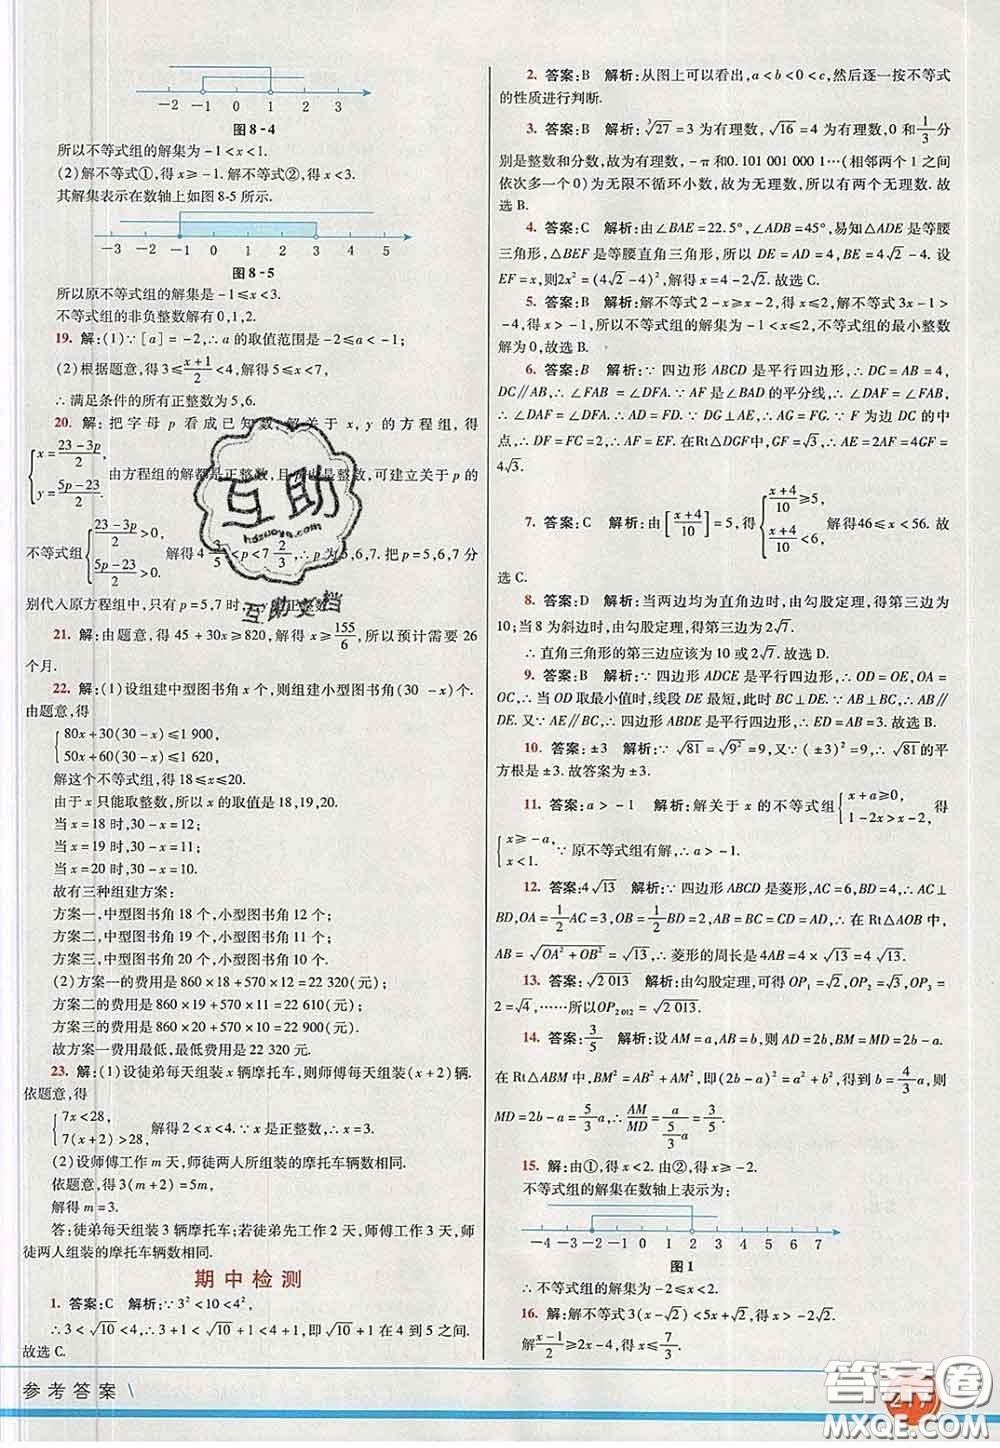 -2 -1 0 1 2 3
图 8-4
所以不等式组的解集为 -1<x<1.
(2)解不等式①,得 x≥-1. 解不等式②,得 x<3.
其解集表示在数轴上如图 8-5 所示.
-3 -2 -1 0 1 2 3 4 5
图 8-5
所以原不等式组的解集是 -1≤x<3.
不等式组的非负整数解有 0,1,2.
19. 解:(1)∵[a]=-2,∴a 的取值范围是 -2≤a<-1;
(2)根据题意,得 3≤(x+1)/2<4,解得 5≤x<7,
∴满足条件的所有正整数为 5,6.
20. 解:把字母 p 看成已知数,解关于 x,y 的方程组,得
{x=(23-3p)/2, y=(5p-23)/2. 由方程组的解都是正整数,且 p 也是整数,可建立关于 p 的
不等式组{(23-3p)/2>0, (5p-23)/2>0. 解得 4 3/5<p<7 2/3,∴p 为 5,6,7. 把 p=5,6,7 分
别代入原方程组中,只有 p=5,7 时,
21. 解:由题意,得 45+30x≥820,解得 x≥155/6,所以预计需要 26
个月.
22. 解:(1)设组建中型图书角 x 个,则组建小型图书角(30-x)个.
由题意,得
{80x+30(30-x)≤1 900,
50x+60(30-x)≤1 620,
解这个不等式组,得 18≤x≤20.
由于 x 只能取整数,所以 x 的取值是 18,19,20.
当 x=18 时,30-x=12;
当 x=19 时,30-x=11;
当 x=20 时,30-x=10.
故有三种组建方案:
方案一,中型图书角 18 个,小型图书角 12 个;
方案二,中型图书角 19 个,小型图书角 11 个;
方案三,中型图书角 20 个,小型图书角 10 个.
(2)方案一的费用是 860×18+570×12=22 320(元);
方案二的费用是 860×19+570×11=22 610(元);
方案三的费用是 860×20+570×10=22 900(元).
故方案一费用最低,最低费用是 22 320 元.
23. 解:(1)设徒弟每天组装 x 辆摩托车,则师傅每天组装(x+2)辆.
依题意,得
{7x<28,
7(x+2)>28, 解得 2<x<4. ∵x 是正整数,∴x=3.
(2)设师傅工作 m 天,师徒两人所组装的摩托车辆数相同.
依题意,得 3(m+2)=5m,
解得 m=3.
答:徒弟每天组装 3 辆摩托车;若徒弟先工作 2 天,师傅工作 3 天,师
徒两人组装的摩托车辆数相同.
期中检测
1. 答案:C 解析:∵3²<10<4²,
∴3<√10<4,∴3+1<√10+1<4+1,即√10+1 在 4 到 5 之间.
故选 C.
2. 答案:B 解析:从图上可以看出,a<b<0<c,然后逐一按不等式
的性质进行判断.
3. 答案:B 解析:∛27=3 为有理数,√16=4 为有理数,0 和 1/3 分
别是整数和分数,故为有理数,-π 和0.101 001 000 1…(相邻两个 1 之间
依次多一个0)为无限不循环小数,故为无理数,所以有两个无理数. 故
选 B.
4. 答案:C 解析:由∠BAE=22.5°,∠ADB=45°,易知△ADE 是等腰
三角形,△BEF 是等腰直角三角形,所以 DE=AD=4,BE=4√2-4. 设
EF=x,则2x²=(4√2-4)²,解得 x=4-2√2. 故选 C.
5. 答案:B 解析:解不等式 2-x≥x-2,得 x≤2,解不等式 3x-1>
-4,得 x>-1,所以不等式组的解集为 -1<x≤2,不等式组的最小整数
解为 0,故选 B.
6. 答案:B 解析:∵四边形 ABCD 是平行四边形,∴DC=AB=4,
DC∥AB,∴∠FAB=∠DFA. ∵AF 是∠BAD 的平分线,∴∠DAF=∠FAB,
∴∠DAF=∠DFA. ∴AD=FD. ∵DG⊥AE,∴AG=FG. ∵F 为边 DC 的中
点,∴DF=2,AF=EF. 在Rt△DGF中,GF=√3,∴AE=2AF=4GF=
4√3.
7. 答案:C 解析:由[(x+4)/10]=5,得{(x+4)/10≥5, (x+4)/10<6, 解得46≤x<56. 故
选 C.
8. 答案:D 解析:当两边均为直角边时,由勾股定理,得第三边为
10;当 8 为斜边时,由勾股定理,得第三边为 2√7.
∴直角三角形的第三边应该为 10 或2√7. 故选 D.
9. 答案:C 解析:∵四边形 ADCE 是平行四边形,∴OD=OE,OA=
OC,∴当 OD 取最小值时,线段 DE 最短,此时 BC⊥DE. ∵AB⊥BC,∴AB∥
DE. 又∵AE∥BC,∴四边形 ABDE 是平行四边形,∴ED=AB=3. 故选 B.
10. 答案:±3 解析:∵√81=√9²=9,又∵(±3)²=9,∴√81的平
方根是±3. 故答案为±3.
11. 答案:a>-1 解析:解关于 x 的不等式组{x+a≥0, 1-2x>x-2, 得
{x≥-a, x<1. ∵原不等式组有解,∴a>-1.
12. 答案:4√13 解析:∵四边形 ABCD 是菱形,AC=6,BD=4,∴AC⊥
BD,OA=1/2AC=3,OB=1/2BD=2,AB=BC=CD=AD,∴在 Rt△AOB 中,
AB=√(OA²+OB²)=√13,∴菱形的周长是 4AB=4×√13=4√13.
13. 答案:√2 013 解析:由勾股定理,可得 OP₁=√2,OP₂=√3,OP₃
=2=√4,……所以OP₂ ₀₁₂=√2 013.
14. 答案:3/5 解析:设 AM=a,AB=b,则 AD=2b,BM=MD=2b-a.
在Rt△ABM 中,BM²=AB²+AM²,即(2b-a)²=a²+b²,得到 b=4/3a,则
MD=2b-a=5/3a,∴AM/MD=a/(5/3a)=3/5.
15. 解:由①,得 x<2. 由②,得 x≥-2.
不等式组的解集在数轴上表示为;
-4 -3 -2 -1 0 1 2 3 4 5 6 7
图 1
∴不等式组的解集为 -2≤x<2.
16. 解:解不等式 3(x-√2)<5x+√2,得 x>-2√2.
解(x-1)/2≥2x-4,得 x≤7/3.
互助
hdzuoye.com
互助文档
参考答案
答案圈
MXQE.COM